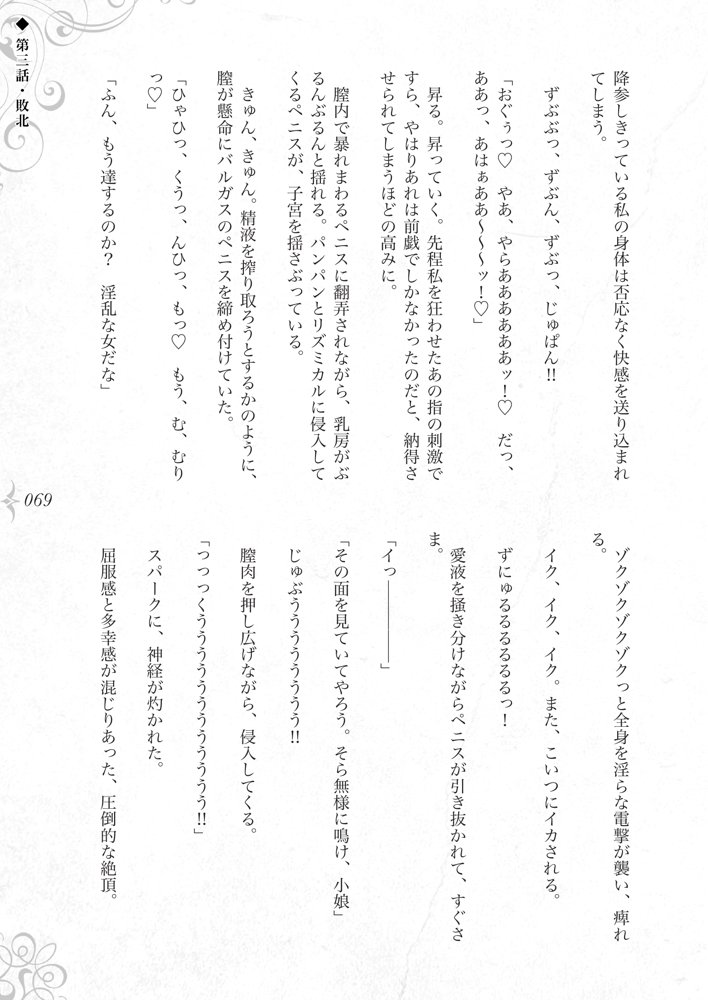 ◆第三話・敗北
降参しきっている私の身体は否応なく快感を送り込まれ
てしまう。
ずぶぶっ、ずぶん、ずぶっ、じゅぱん!!
「おぐぅっ♡　やあ、やらああああああッ！♡　だっ、
ああっ、あはぁああ～～～ッ！♡」
昇る。昇っていく。先程私を狂わせたあの指の刺激で
すら、やはりあれは前戯でしかなかったのだと、納得さ
せられてしまうほどの高みに。
膣内で暴れまわるペニスに翻弄されながら、乳房がぶ
るんぶるんと揺れる。パンパンとリズミカルに侵入して
くるペニスが、子宮を揺さぶっている。
きゅん、きゅん。精液を搾り取ろうとするかのように、
膣が懸命にバルガスのペニスを締め付けていた。
「ひゃひっ、くうっ、んひっ、もっ♡　もう、む、むり
っ♡」
「ふん、もう達するのか？　淫乱な女だな」
ゾクゾクゾクゾクっと全身を淫らな電撃が襲い、痺れ
る。
イク、イク、イク。また、こいつにイカされる。
ずにゅるるるるるるっ！
愛液を掻き分けながらペニスが引き抜かれて、すぐさ
ま。
「イっ――――――」
「その面を見ていてやろう。そら無様に鳴け、小娘」
じゅぶうううううううう!!
膣肉を押し広げながら、侵入してくる。
「っっっくうううううううううううう!!」
スパークに、神経が灼かれた。
屈服感と多幸感が混じりあった、圧倒的な絶頂。
069